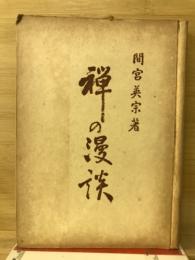 間宮英宗著
禅の漫談